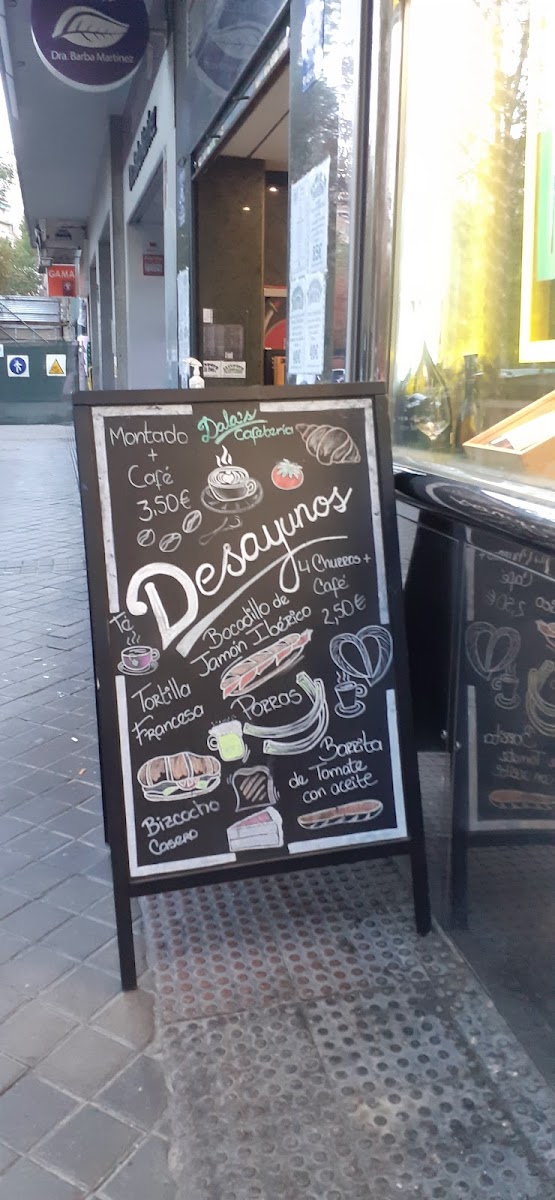 Dra. Barba Martinez
GAMA
Montado
+
Café
3,50€
Dala's
Cafetería
Desayunos
4 Churros +
Café
2,50€
Té
Bocadillo de
Jamón Ibérico
Tortilla
Francesa
Porras
Barrita
de Tomate
con aceite
Bizcocho
Casero